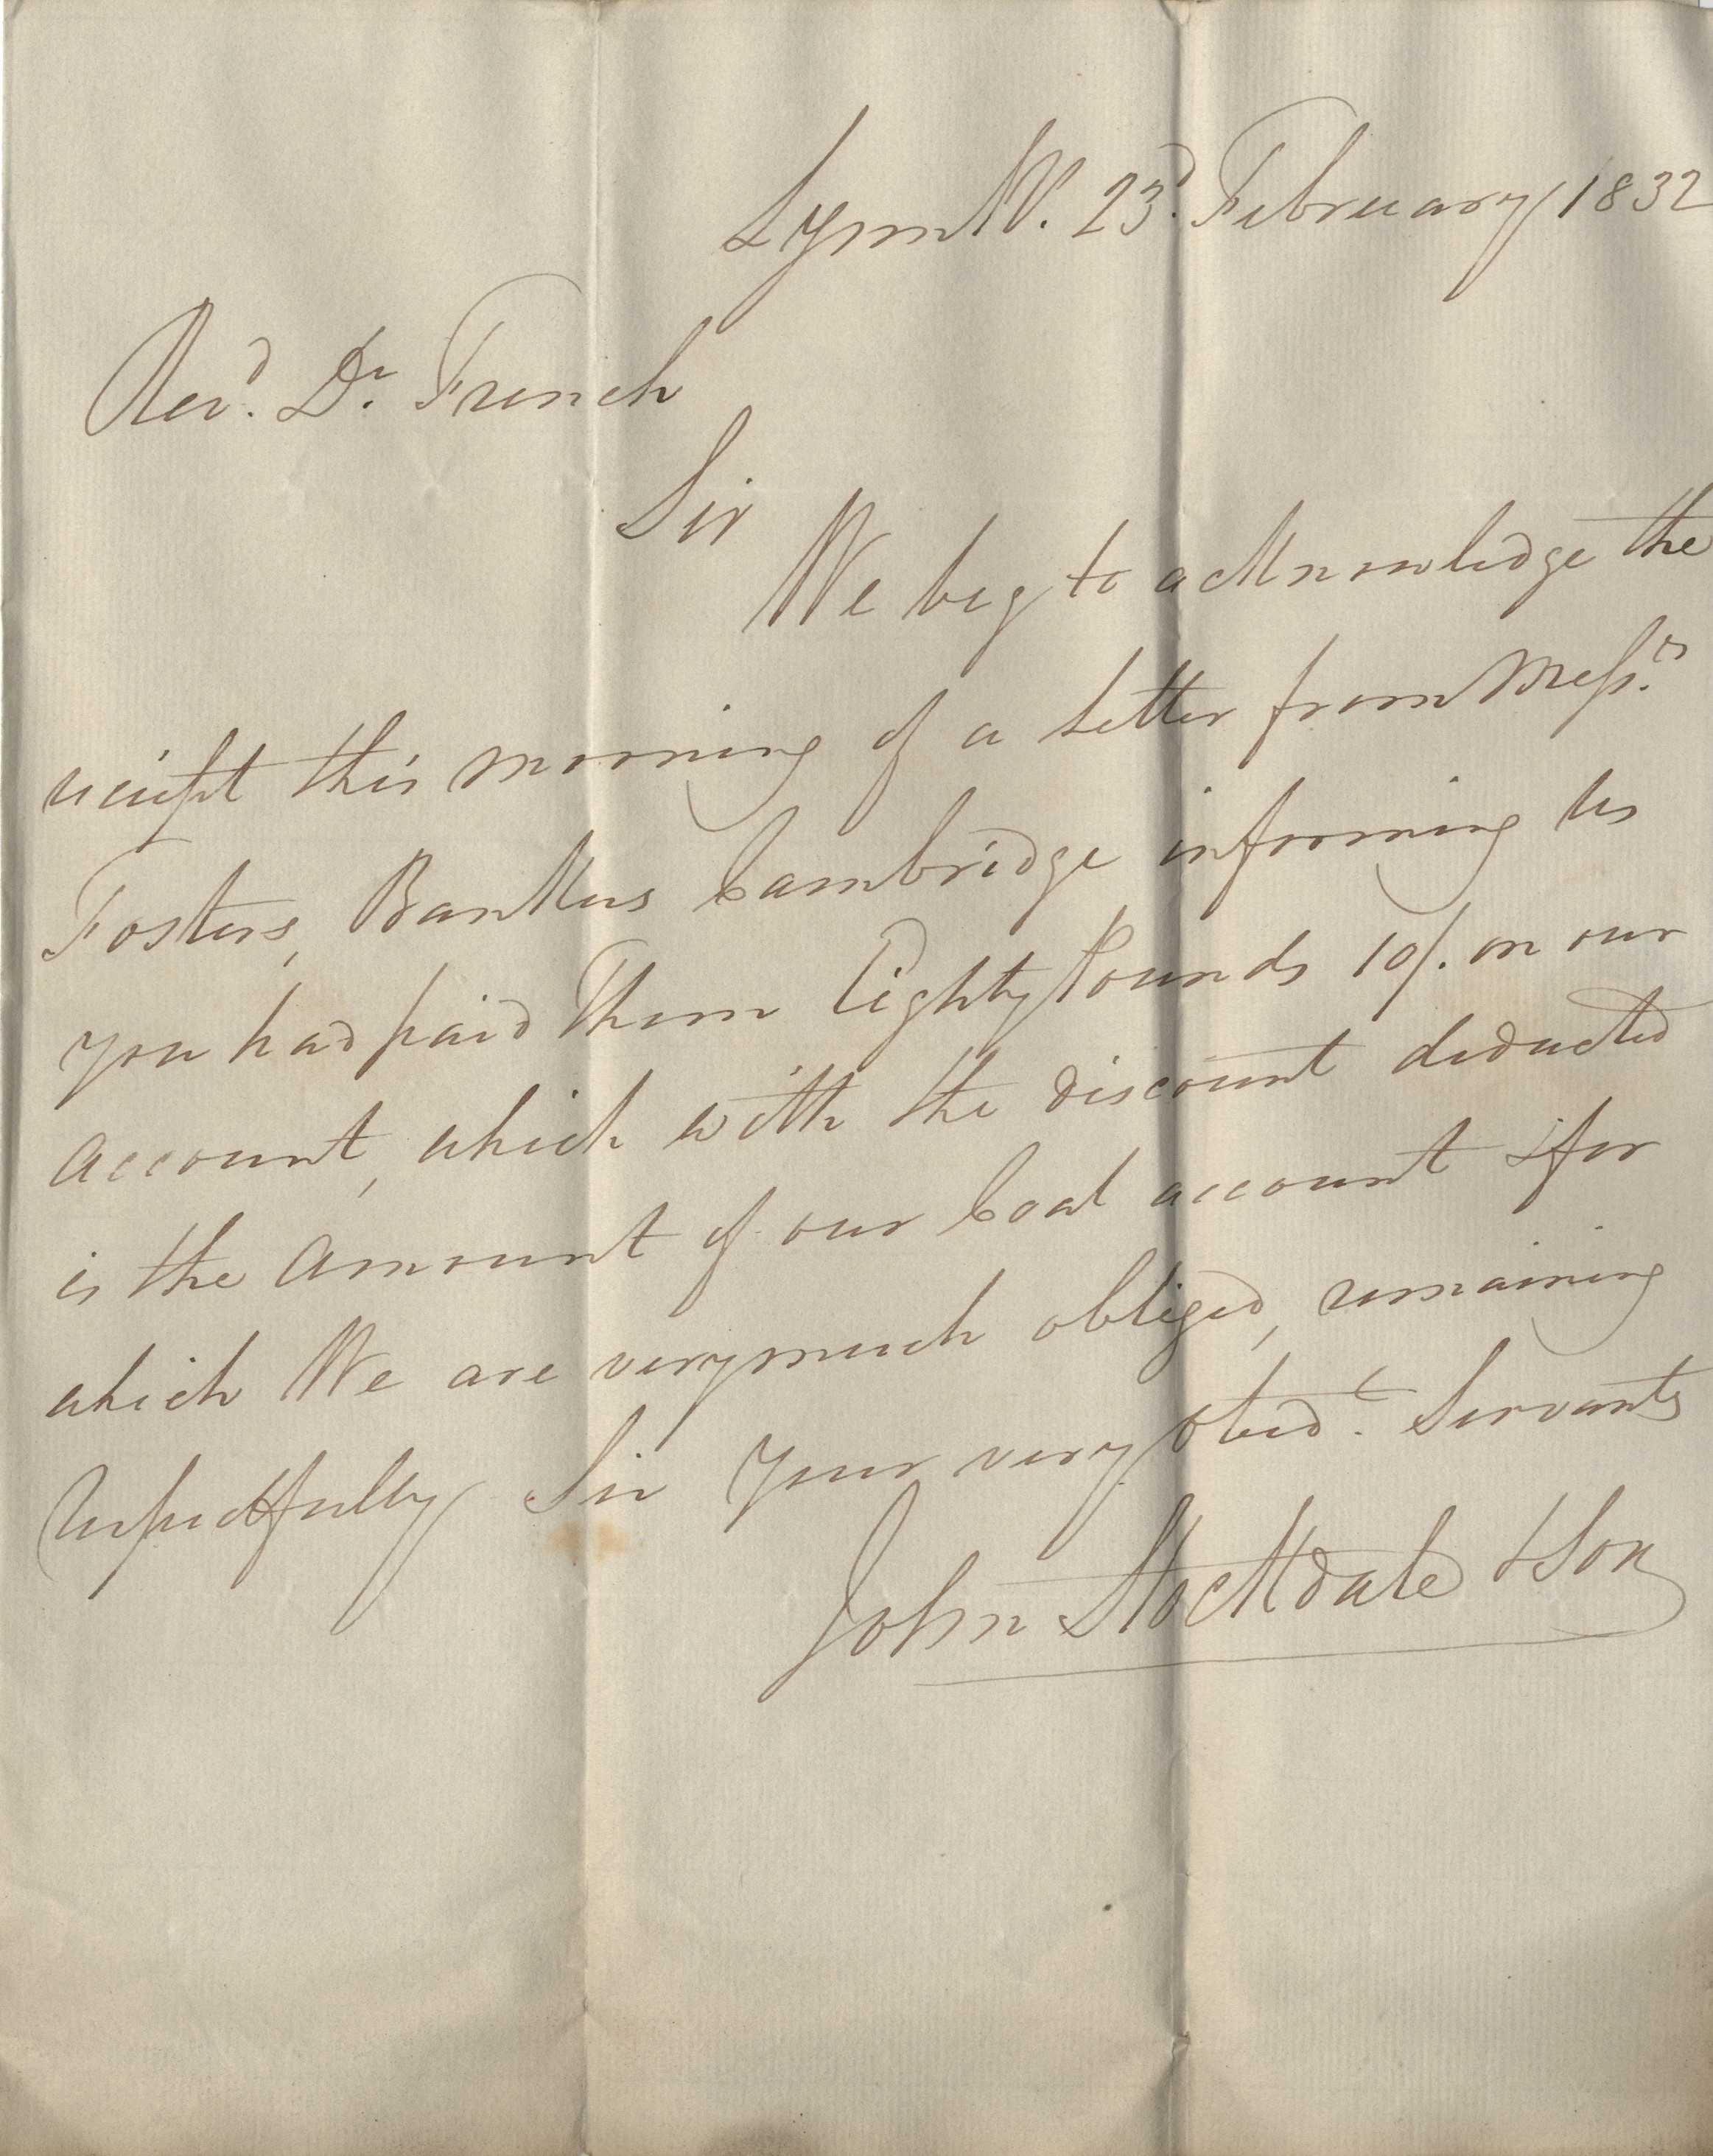 Lynn N. 23d. February 1832
Revd. Dr. French
Sir
We beg to acknowledge the
receipt this morning of a Letter from Messrs.
Fosters, Bankers Cambridge informing us
you had paid Them Eighty Pounds 10/. on our
Account, which with the discount deducted
is the Amount of our Coal account & for
which We are very much obliged, remaining
respectfully Sir Your very obedt. Servants
John Stockdale & Son